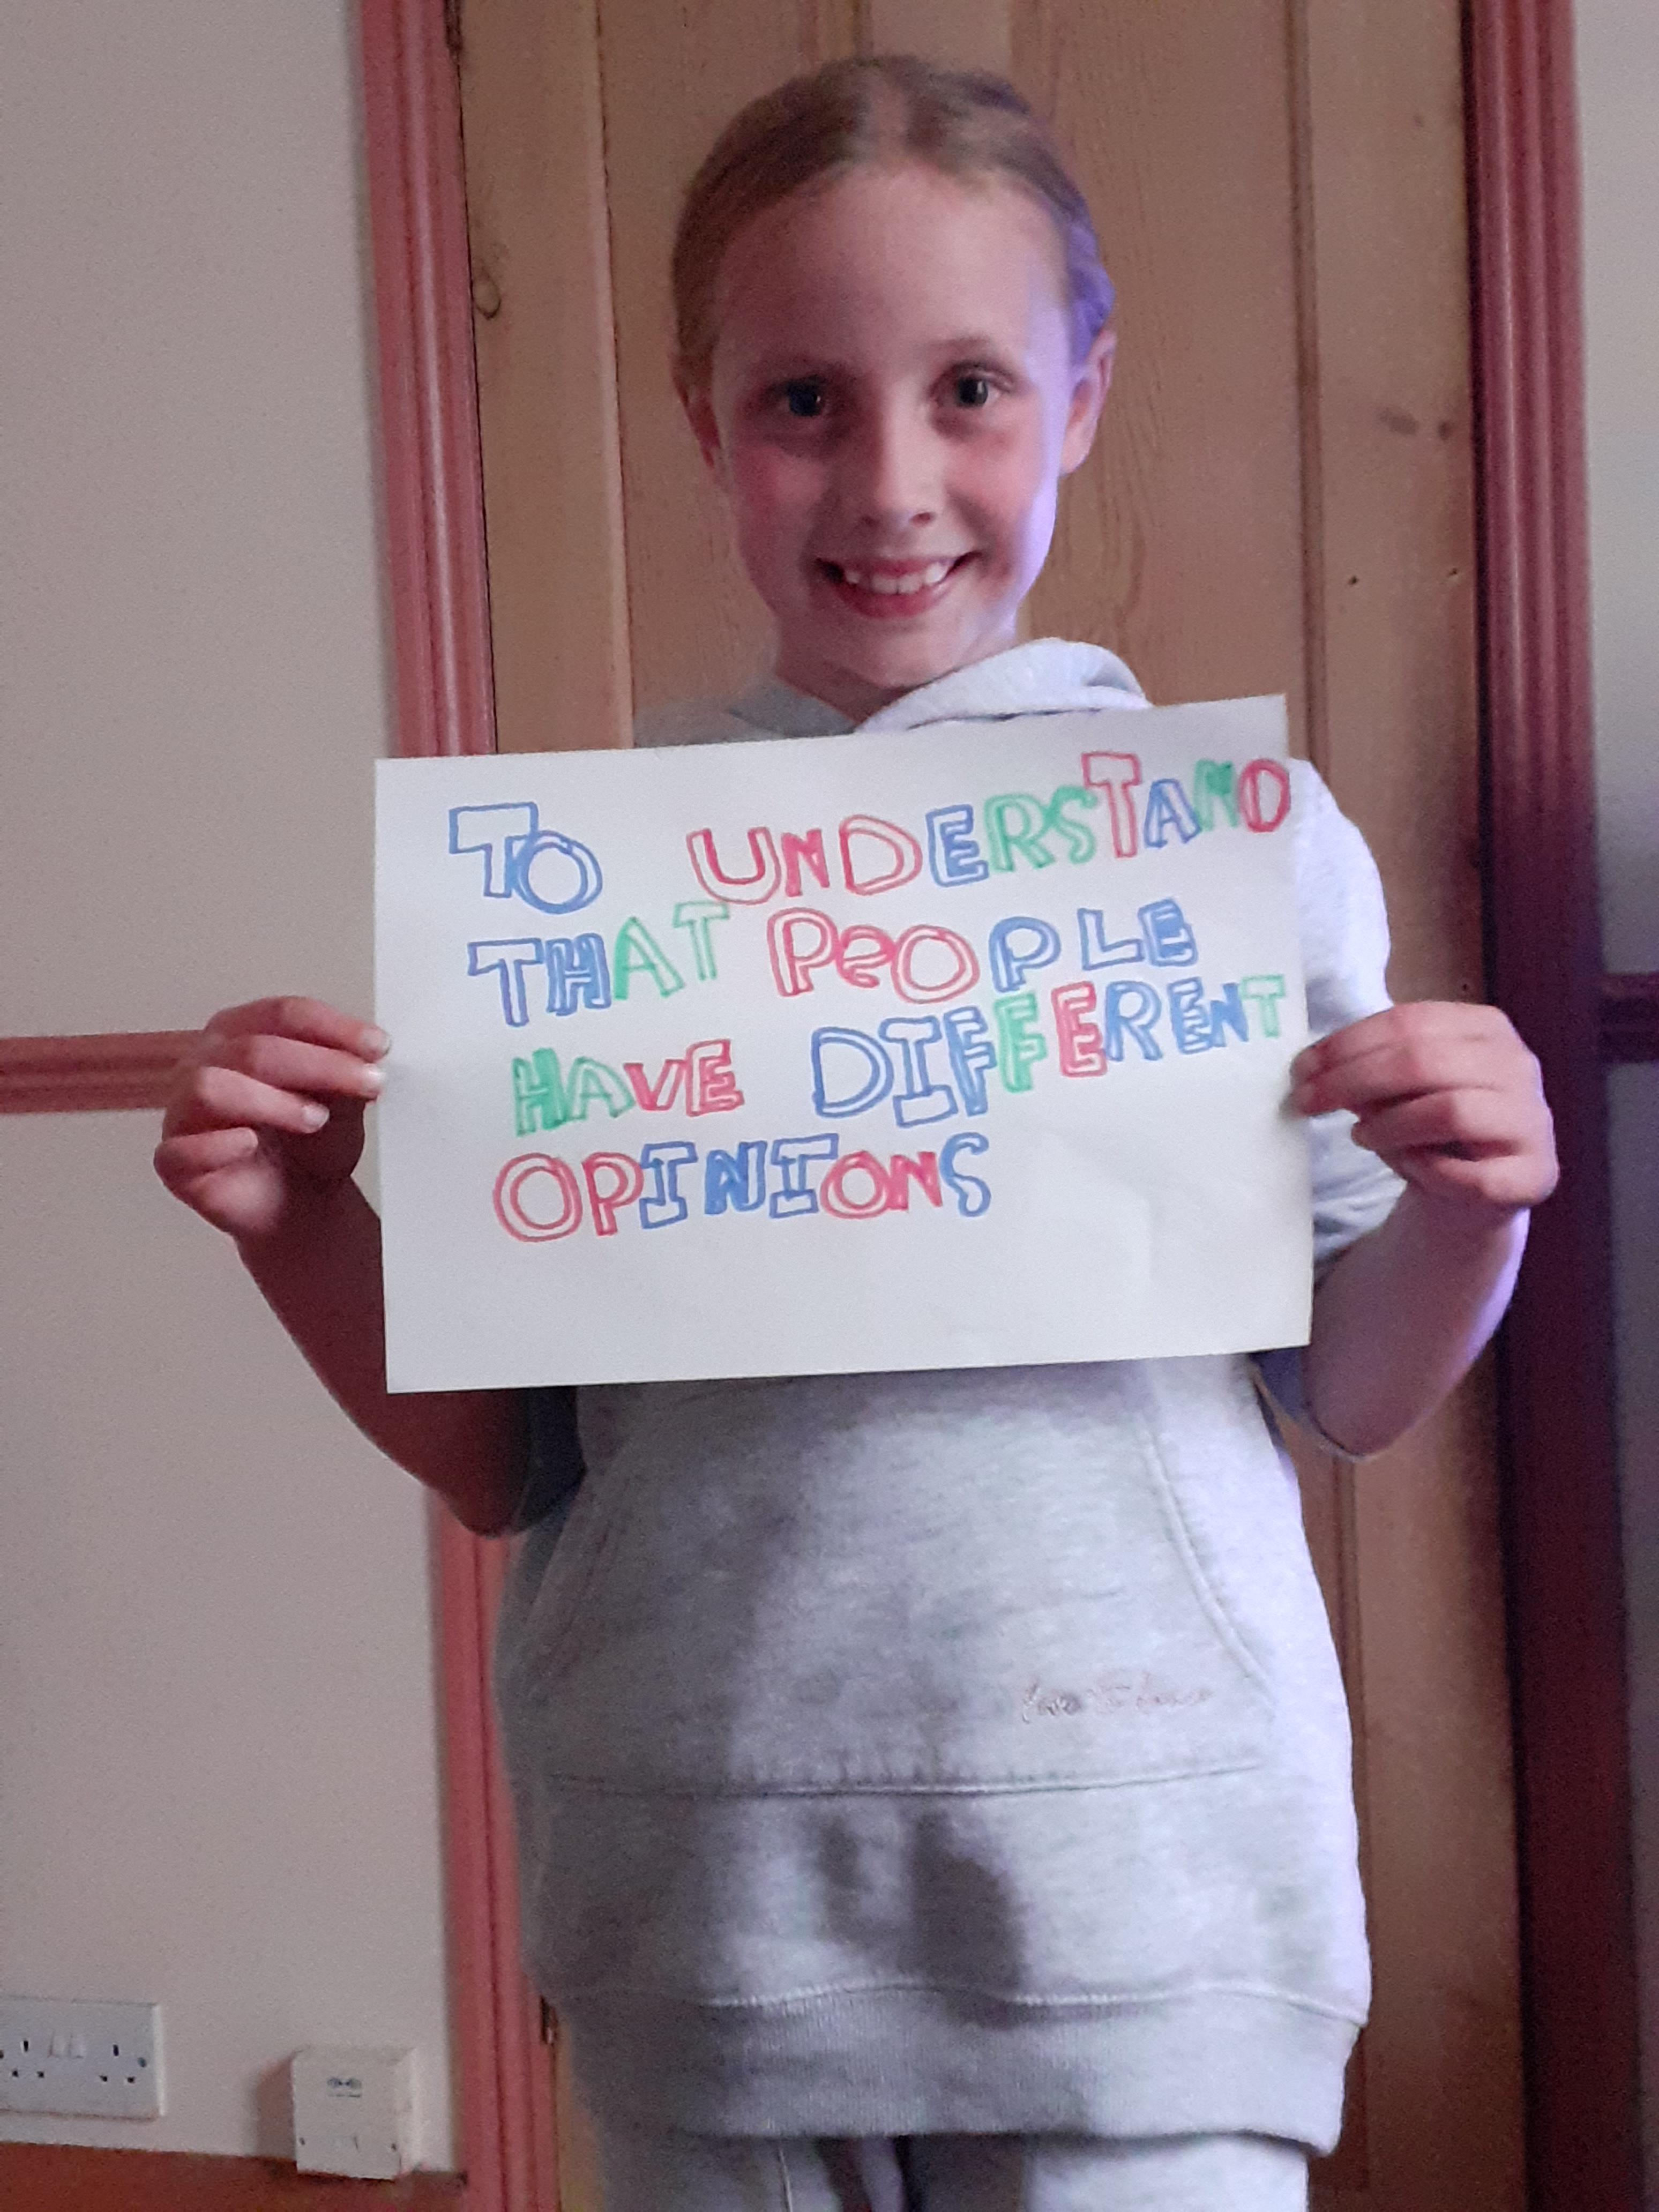 TO UNDERSTAND
THAT PeOPLE
HAVE DIFFERENT
OPINIONS